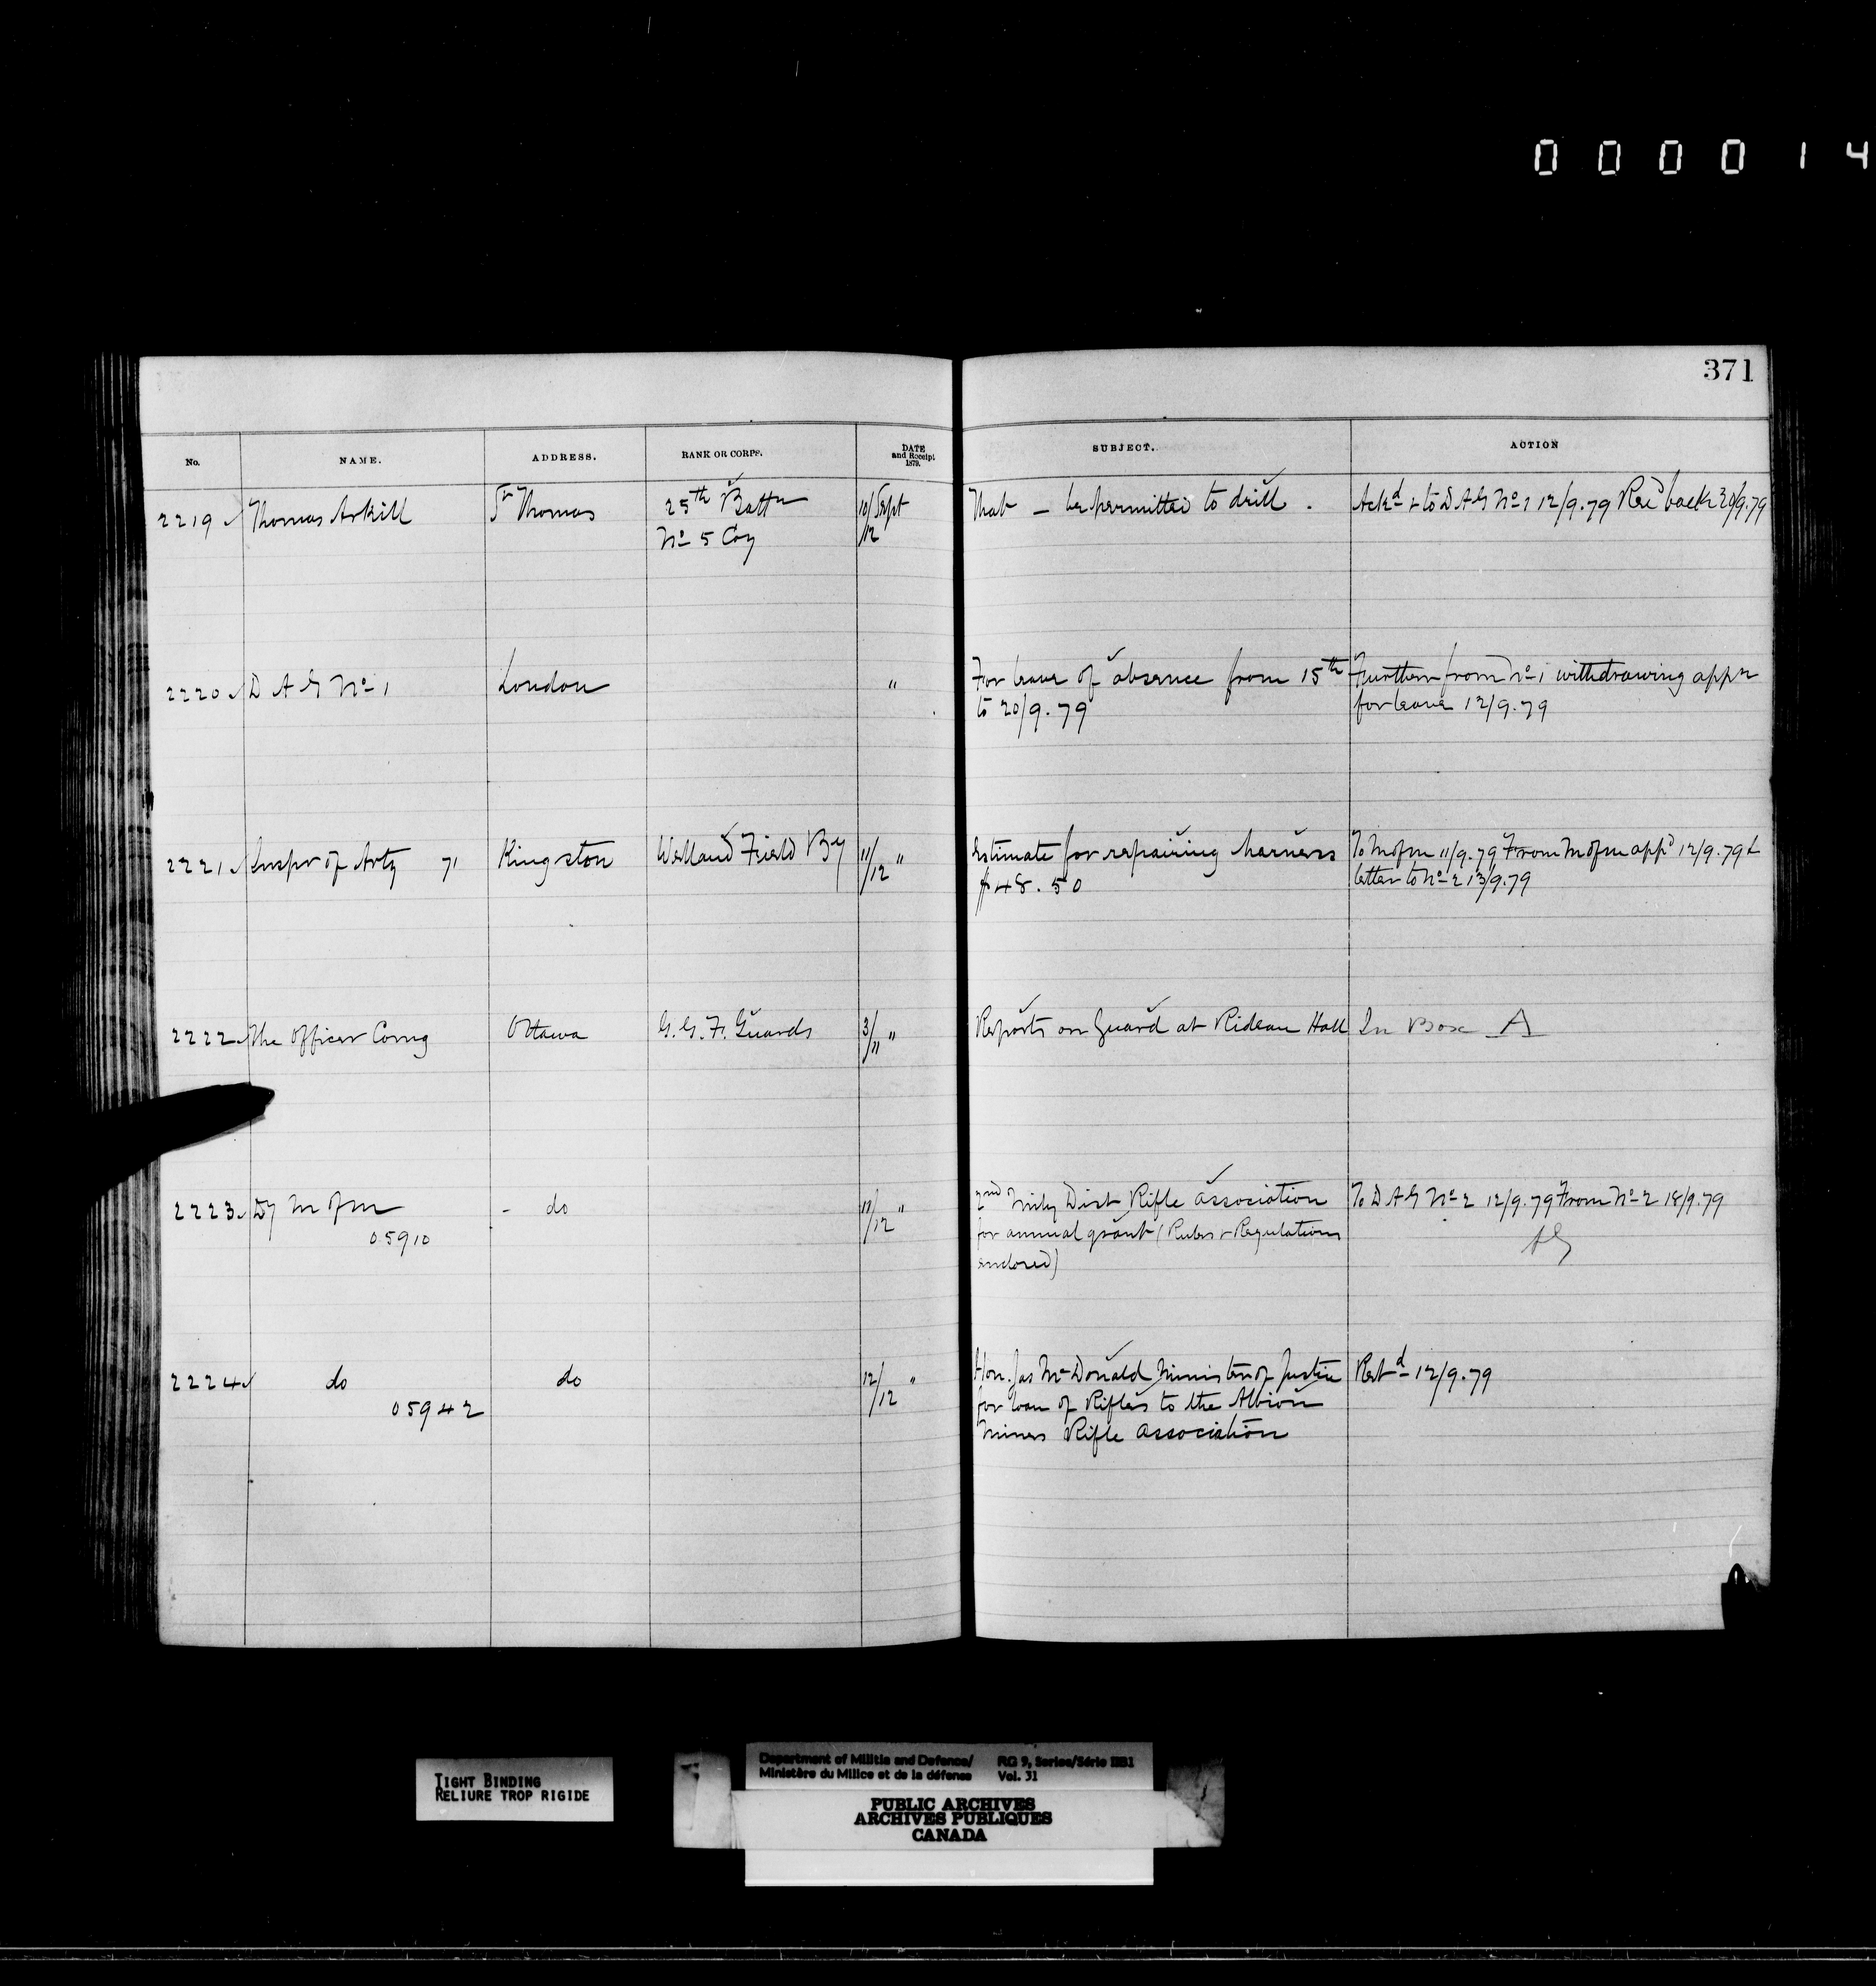 000014
371
No. NAME. ADDRESS. RANK OR CORPS. DATE and Receipt 1879. SUBJECT. ACTION
2219 Thomas Arkill St Thomas 25th Battn 10/12 Sept That — be permitted to drill. Ackd & to D A G No 1 12/9.79 Recd back 30/9.79
No 5 Coy
2220 D A G No 1 London " For leave of absence from 15th Further from No 1 withdrawing appn
to 20/9.79 for leave 12/9.79
2221 Inspr of Arty 71 Kingston Welland Field By 11/12 " Estimate for repairing harness To M of M 11/9.79 From M of M appd 12/9.79 &
$48.50 letter to No 2 13/9.79
2222 The Officer Comg Ottawa G.G.F. Guards 3/11 " Reports on Guard at Rideau Hall In Box A
2223 Dy M of M - do 11/12 " 2nd Mily Dist Rifle Association To D A G No 2 12/9.79 From No 2 18/9.79
05910 for annual grant (Rules & Regulations
enclosed)
2224 do do 12/12 " Hon. Jas McDonald Minister of Justice Retd 12/9.79
05942 for loan of Rifles to the Albion
Miners Rifle Association
TIGHT BINDING
RELIURE TROP RIGIDE
Department of Militia and Defence/ RG 9, Series/Série IIB1
Ministère du Milice et de la défense Vol. 31
PUBLIC ARCHIVES
ARCHIVES PUBLIQUES
CANADA